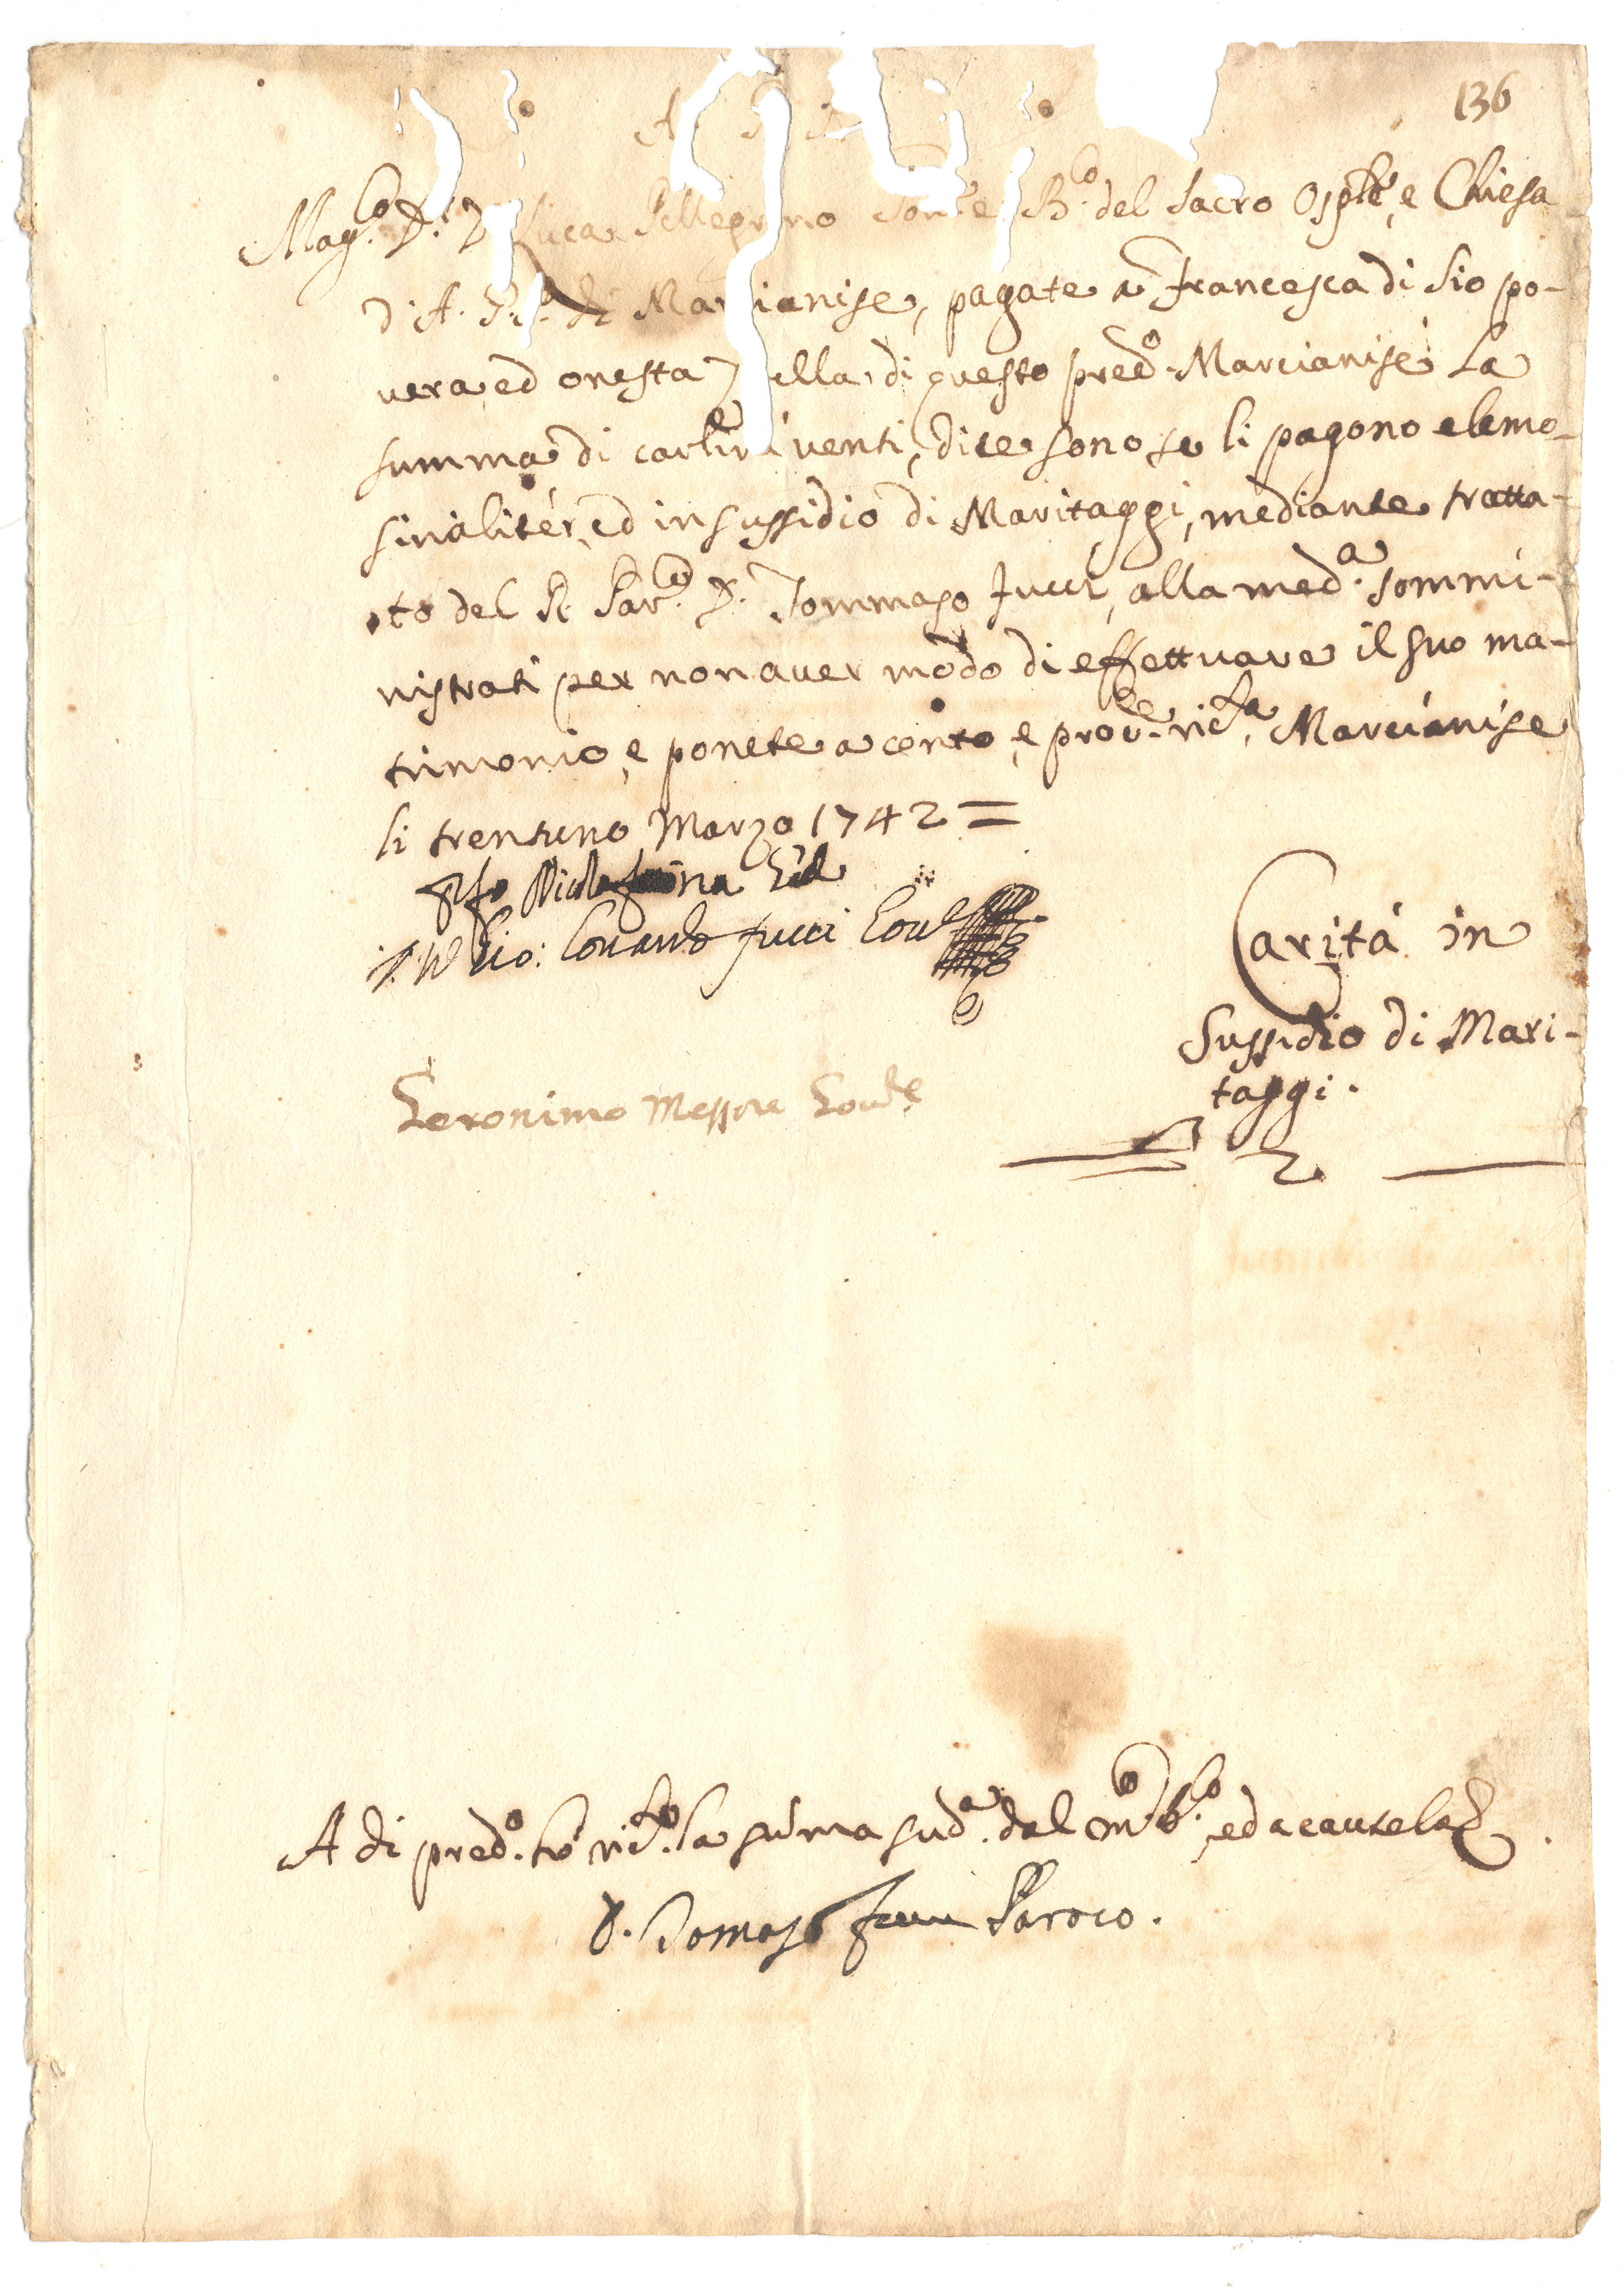 136
A
Mag.co D.r D. Luca Pellegrino B.co del Sacro Osple, e Chiesa
di A. di Marcianise, pagate a Francesca di Sio po-
vera, ed onesta Zitella, di questo pred.o Marcianise la
summa di carlini venti, dite sono se li pagono elemo-
sinalitèr, ed in sussidio di Maritaggi, mediante tratta-
to del R. Par.co D. Tommaso Jucci, alla med.a sommi-
nistrati per non aver modo di effettuare il suo ma-
trimonio, e ponete a conto, e prov.le ric.ta, Marcianise
li trentuno Marzo 1742 =
Carità in
Gio: Jucci Gov.e
Sussidio di Mari-
Geronimo Messore Gov.re
taggi.
A di pred.o hò ric.to la suma sud.a dal m.co b.co, ed a cautela
D. Tomaso Jucci Paroco.